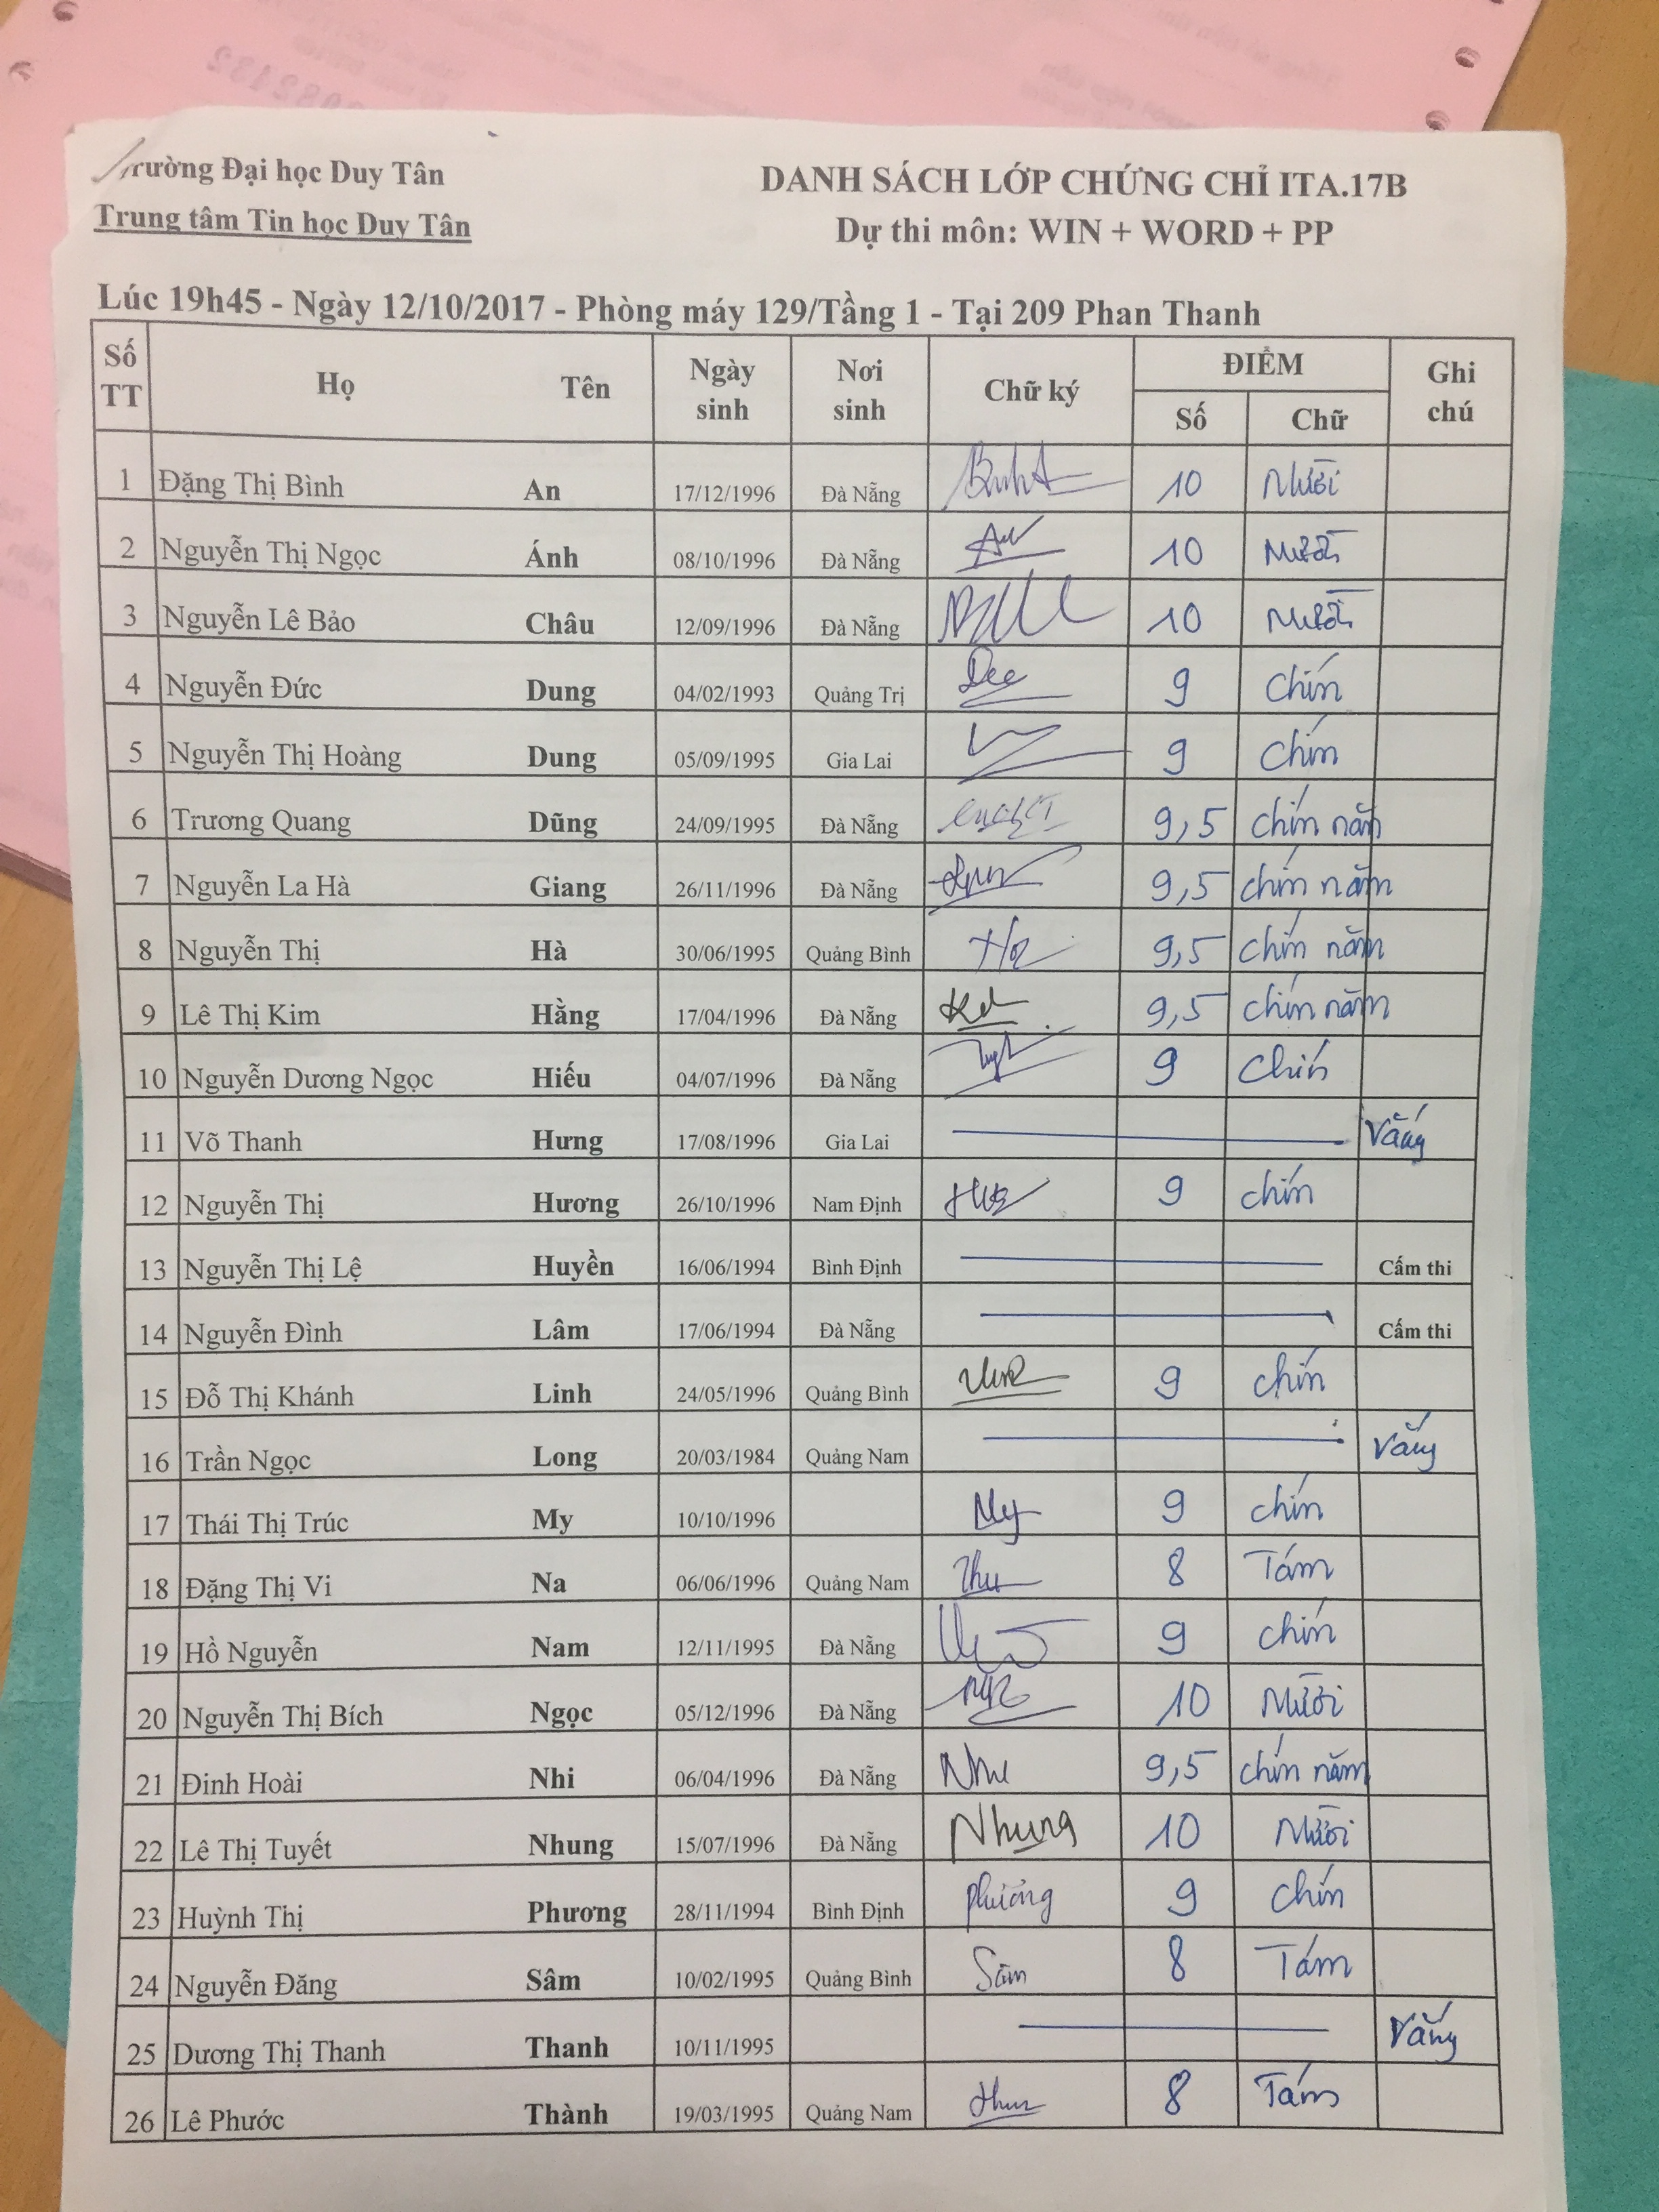 Trường Đại học Duy Tân
Trung tâm Tin học Duy Tân
DANH SÁCH LỚP CHỨNG CHỈ ITA.17B
Dự thi môn: WIN + WORD + PP
Lúc 19h45 - Ngày 12/10/2017 - Phòng máy 129/Tầng 1 - Tại 209 Phan Thanh
Số TT Họ Tên Ngày sinh Nơi sinh Chữ ký ĐIỂM Số Chữ Ghi chú
1 Đặng Thị Bình An 17/12/1996 Đà Nẵng 10 Mười
2 Nguyễn Thị Ngọc Ánh 08/10/1996 Đà Nẵng 10 Mười
3 Nguyễn Lê Bảo Châu 12/09/1996 Đà Nẵng 10 Mười
4 Nguyễn Đức Dung 04/02/1993 Quảng Trị 9 Chín
5 Nguyễn Thị Hoàng Dung 05/09/1995 Gia Lai 9 Chín
6 Trương Quang Dũng 24/09/1995 Đà Nẵng 9,5 chín năm
7 Nguyễn La Hà Giang 26/11/1996 Đà Nẵng 9,5 chín năm
8 Nguyễn Thị Hà 30/06/1995 Quảng Bình Hà 9,5 chín năm
9 Lê Thị Kim Hằng 17/04/1996 Đà Nẵng 9,5 chín năm
10 Nguyễn Dương Ngọc Hiếu 04/07/1996 Đà Nẵng 9 Chín
11 Võ Thanh Hưng 17/08/1996 Gia Lai Vắng
12 Nguyễn Thị Hương 26/10/1996 Nam Định 9 chín
13 Nguyễn Thị Lệ Huyền 16/06/1994 Bình Định Cấm thi
14 Nguyễn Đình Lâm 17/06/1994 Đà Nẵng Cấm thi
15 Đỗ Thị Khánh Linh 24/05/1996 Quảng Bình 9 chín
16 Trần Ngọc Long 20/03/1984 Quảng Nam Vắng
17 Thái Thị Trúc My 10/10/1996 My 9 chín
18 Đặng Thị Vi Na 06/06/1996 Quảng Nam 8 Tám
19 Hồ Nguyễn Nam 12/11/1995 Đà Nẵng 9 chín
20 Nguyễn Thị Bích Ngọc 05/12/1996 Đà Nẵng 10 Mười
21 Đinh Hoài Nhi 06/04/1996 Đà Nẵng Nhi 9,5 chín năm
22 Lê Thị Tuyết Nhung 15/07/1996 Đà Nẵng Nhung 10 Mười
23 Huỳnh Thị Phương 28/11/1994 Bình Định Phương 9 chín
24 Nguyễn Đăng Sâm 10/02/1995 Quảng Bình Sâm 8 Tám
25 Dương Thị Thanh Thanh 10/11/1995 Vắng
26 Lê Phước Thành 19/03/1995 Quảng Nam 8 Tám